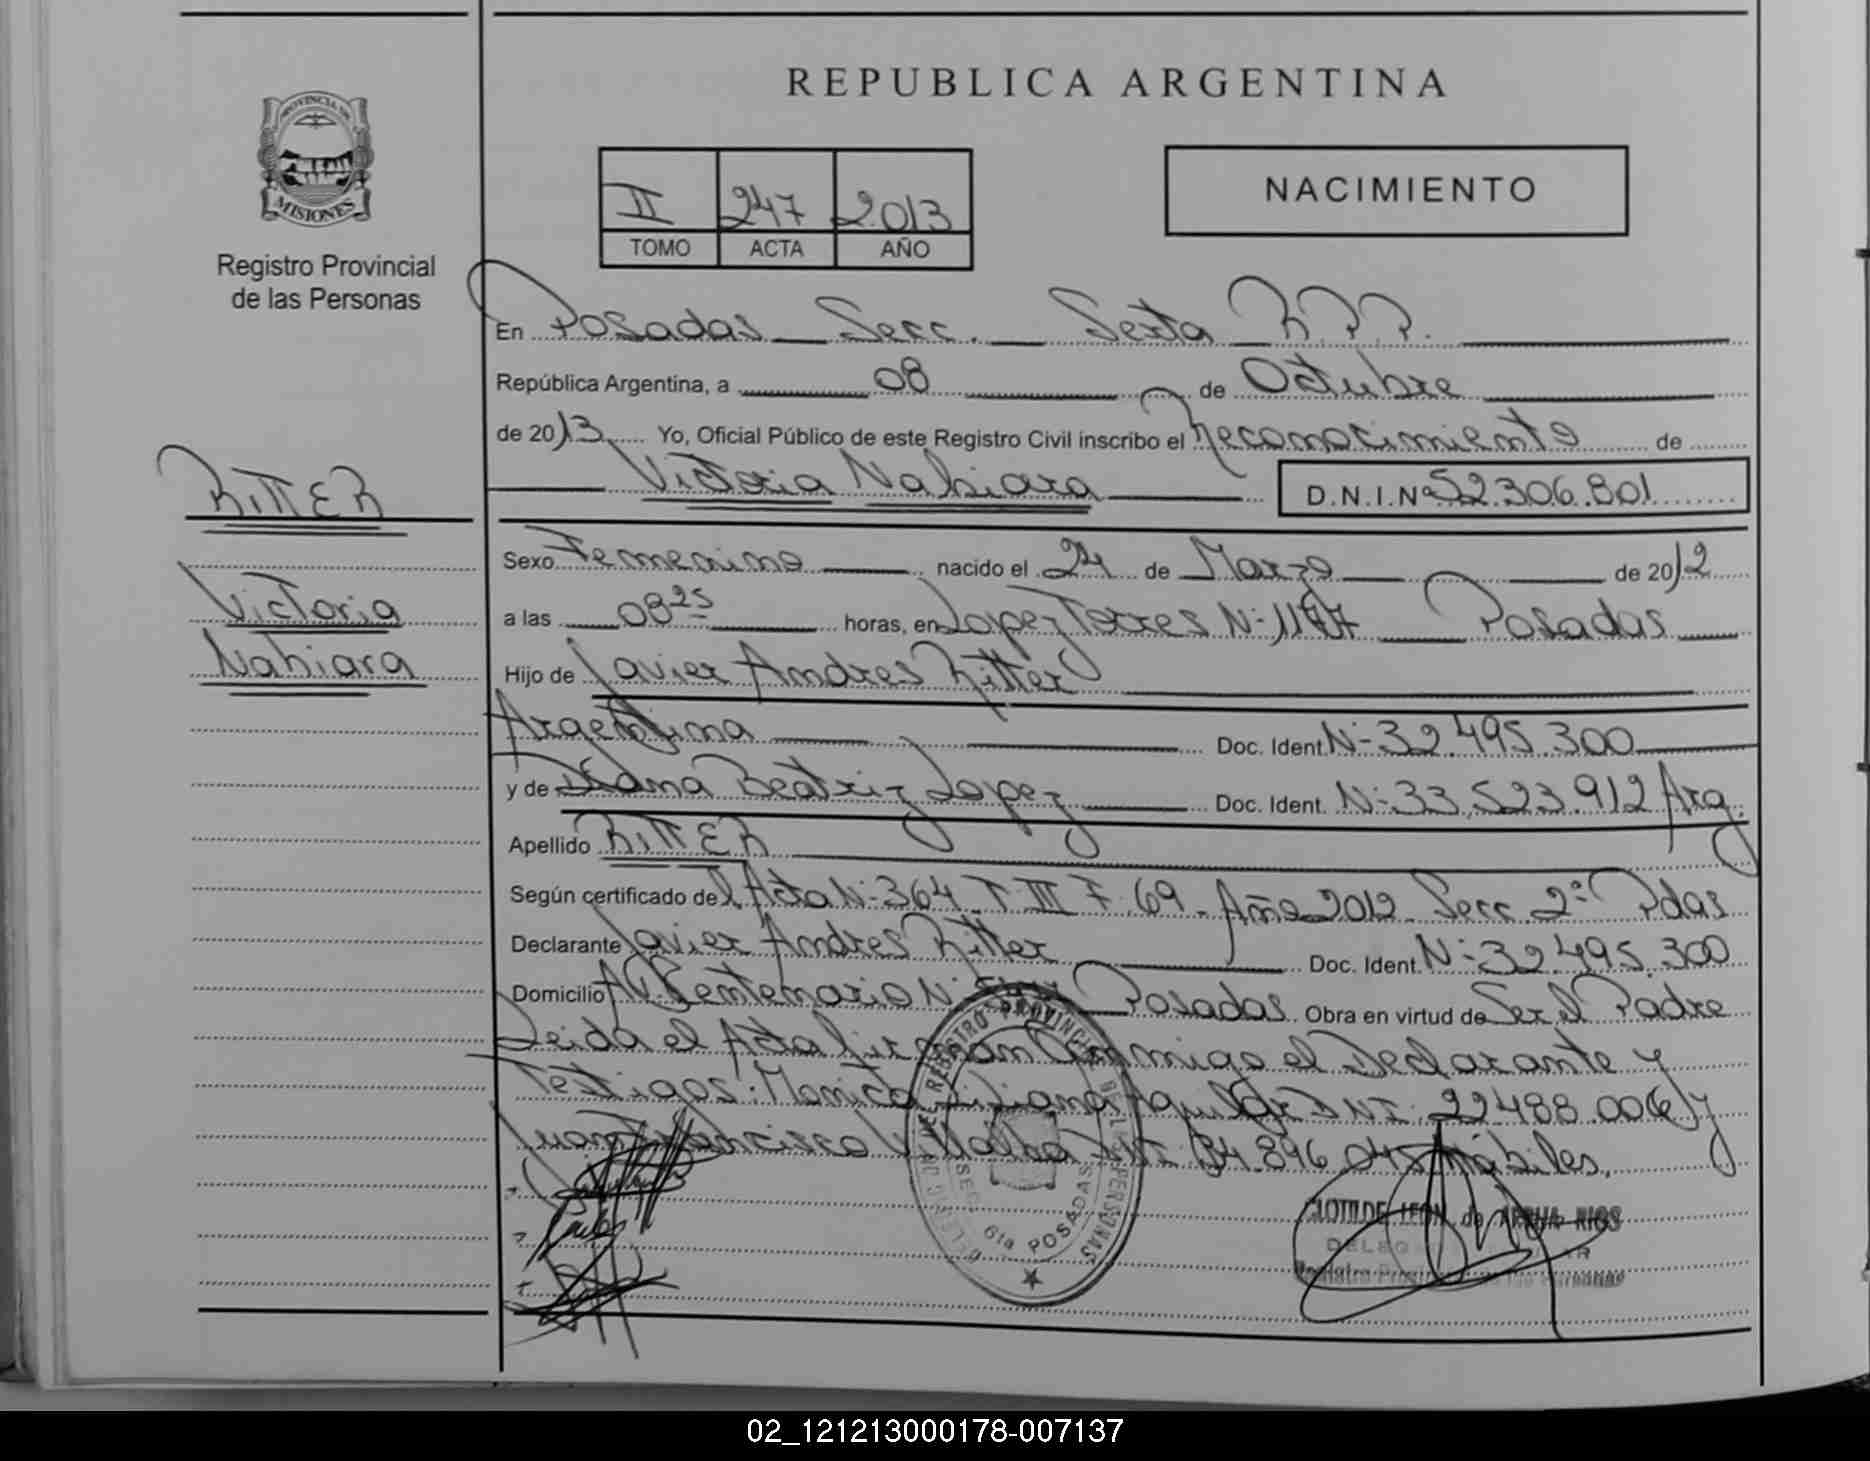 REPUBLICA ARGENTINA
PROVINCIA DE
MISIONES
Registro Provincial
de las Personas
II 247 2013
TOMO ACTA AÑO
NACIMIENTO
En Posadas Secc. Sexta R.P.P.
República Argentina, a 08 de Octubre
de 2013 Yo, Oficial Público de este Registro Civil inscribo el Reconocimiento de
Victoria Nahiara D.N.I.Nº 52.306.801
RITTER
Victoria
Nahiara
Sexo Femenino nacido el 24 de Marzo de 2012
a las 08 25 horas, en Lopez Torres N° Posadas
Hijo de Javier Andres Ritter
Argentina Doc. Ident. N° 32.495.300
y de Diana Beatriz Lopez Doc. Ident. N° 33.523.912 Arg.
Apellido RITTER
Según certificado del Acta N° 364 T III F 69 Año 2012 Secc 2° Pdas
Declarante Javier Andres Ritter Doc. Ident. N° 32.495.300
Domicilio Av. Centenario N° Posadas Obra en virtud de Ser el Padre
Leida el Acta firman Conmigo el Declarante y
Testigos: Monica Liliana Aguilar DNI 22488.006 y
Juan Francisco Villalba DNI 34.896.045 hábiles.
REGISTRO PROVINCIAL DE LAS PERSONAS
SECC. 6ta POSADAS
CLOTILDE LEON de RIOS
02_121213000178-007137